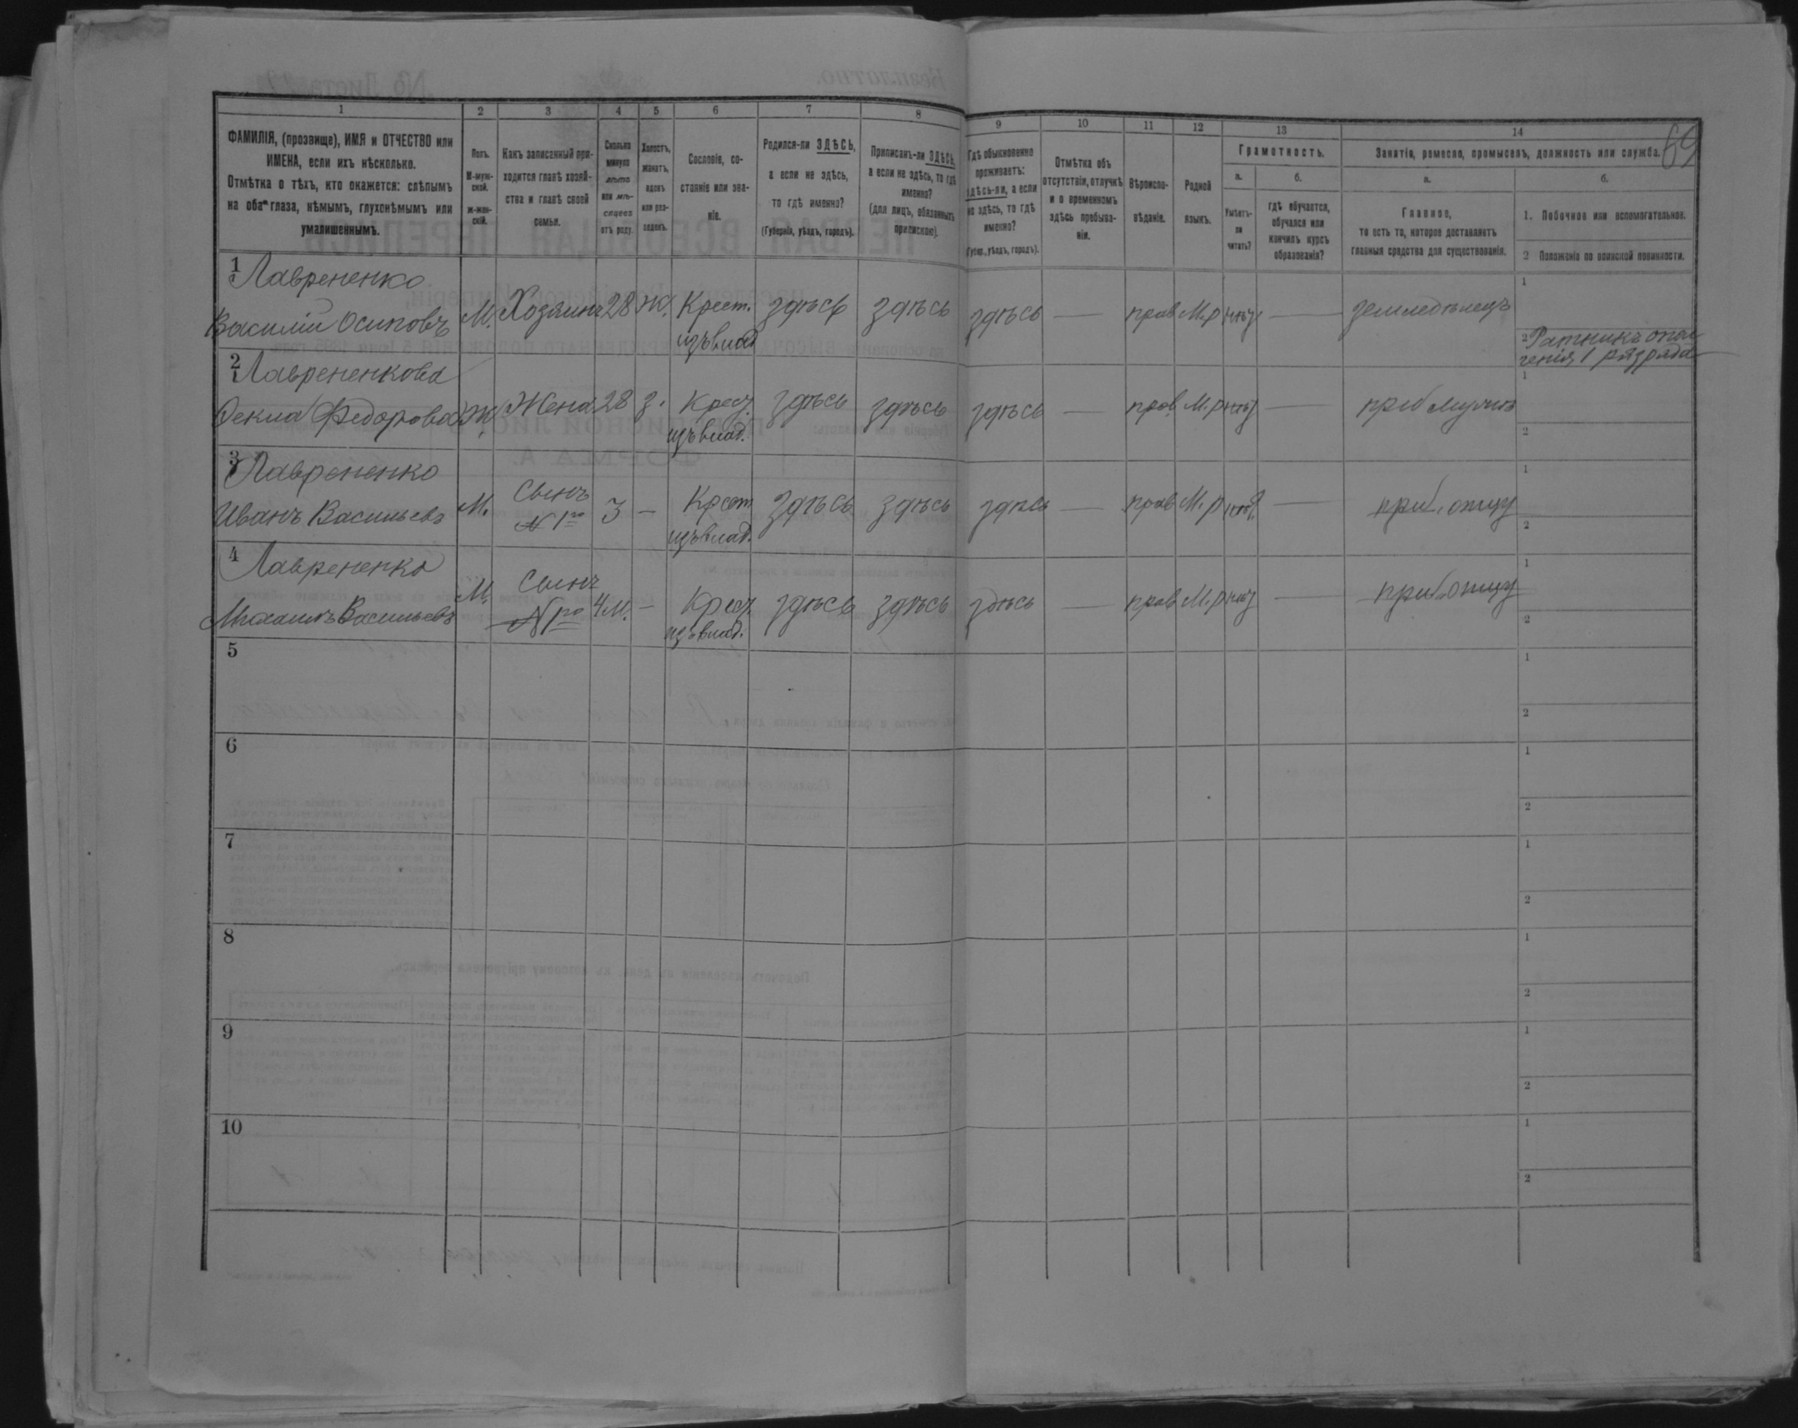 69
1 2 3 4 5 6 7 8 9 10 11 12 13 14
ФАМИЛІЯ, (прозвище), ИМЯ и ОТЧЕСТВО или
ИМЕНА, если ихъ нѣсколько.
Отмѣтка о тѣхъ, кто окажется: слѣпымъ
на оба глаза, нѣмымъ, глухонѣмымъ или
умалишеннымъ.
Полъ.
М-муж-
ской.
Ж-жен-
скій.
Какъ записанный при-
ходится главѣ хозяй-
ства и главѣ своей
семьи.
Сколько
минуло
лѣтъ
или мѣ-
сяцевъ
отъ роду.
Холостъ,
женатъ,
вдовъ
или раз-
веденъ.
Сословіе, со-
стояніе или зва-
ніе.
Родился-ли ЗДѢСЬ,
а если не здѣсь,
то гдѣ именно?
(Губернія, уѣздъ, городъ).
Приписанъ-ли ЗДѢСЬ,
а если не здѣсь, то гдѣ
именно?
(для лицъ, обязанныхъ
припискою).
Гдѣ обыкновенно
проживаетъ:
здѣсь-ли, а если
не здѣсь, то гдѣ
именно?
(Губер., уѣздъ, городъ).
Отмѣтка объ
отсутствіи, отлучкѣ
и о временномъ
здѣсь пребыва-
ніи.
Вѣроиспо-
вѣданіе.
Родной
языкъ.
Грамотность.
а.
Умѣетъ-
ли
читать?
б.
гдѣ обучается,
обучался или
кончилъ курсъ
образованія?
Занятіе, ремесло, промыселъ, должность или служба.
а.
Главное,
то есть то, которое доставляетъ
главныя средства для существованія.
б.
1. Побочное или вспомогательное.
2 Положеніе по воинской повинности.
1 Лаврененко
Василій Осиповъ М. Хозяинъ 28 Ж. Крест. здѣсь здѣсь здѣсь — прав М.р нѣт — земледѣлецъ
изъ влад.
1
2 Ратникъ опол
ченія 1 разряда
2 Лаврененкова
Фекла Федорова Ж. Жена 28 З. Крест. здѣсь здѣсь здѣсь — прав. М.р нѣт — при мужѣ
изъ влад.
1
2
3 Лаврененко
Иванъ Васильевъ М. Сынъ 3 — Крест здѣсь здѣсь здѣсь — прав М.р нѣт — при отцу
N 1го изъ влад.
1
2
4 Лаврененко
Михаилъ Васильевъ М. Сынъ 4 М. — Крест здѣсь здѣсь здѣсь — прав М.р нѣт — при отцу
N 1го изъ влад.
1
2
5
1
2
6
1
2
7
1
2
8
1
2
9
1
2
10
1
2